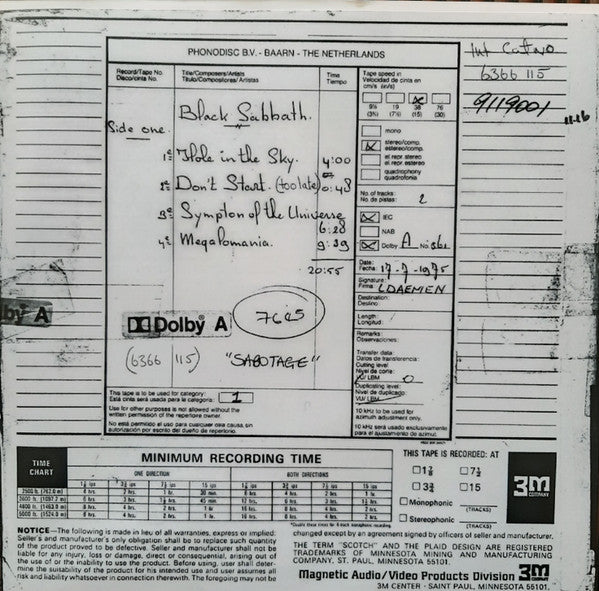 PHONODISC B.V. - BAARN - THE NETHERLANDS
Int Cat No
6366 115
9119001
11.16
Record/Tape No.
Disco/cinta No.
Title/Composers/Artists
Titulo/Compositores/Artistas
Time
Tiempo
Black Sabbath.
Side one.
1e Hole in the Sky. 4:00
2e Don't Start. (too late) 0:48
3e Sympton of the Universe
6:28
4e Megalomania. 9:39
20:55
Tape speed in
Velocidad de cinta en
cm/s (in/s)
9½ 19 38 76
(3¾) (7½) (15) (30)
mono
stereo/comp.
estereo/comp.
el repr. stereo
el repr. estereo
quadrophony
quadrofonia
No. of tracks:
No. de pistas: 2
IEC
NAB
Dolby A No
Date:
Fecha: 17-7-1975
Signature:
Firma: LDAEMEN
Destination:
Destino:
Length:
Longitud:
Remarks:
Observaciones:
Transfer data:
Datos de transferencia:
Cutting level
Nivel de corte:
VU/LBM 0
Duplicating level:
Nivel de duplicado:
VU/LBM
10 kHz to be used for
azimuth adjustment only.
10 kHz será usado exclusivamente
para el ajustamiento de azimut.
by A
Dolby A
7605
(6366 115) "SABOTAGE"
This tape is to be used for category:
Esta cinta será usada para la categoría: 1
Use for other purposes is not allowed without the
written permission of the repertoire owner.
No está permitido el uso para cualquier otra causa, sin
autorización por escrito del dueño de repertorio.
TIME
CHART
MINIMUM RECORDING TIME
ONE DIRECTION BOTH DIRECTIONS
1⅞ ips 3¾ ips 7½ ips 15 ips 1⅞ ips 3¾ ips 7½ ips 15 ips
2500 ft. (762.0 m) 4 hrs. 2 hrs. 1 hr. 30 min. 8 hrs. 4 hrs. 2 hrs. 1 hr.
3600 ft. (1097.2 m) 6 hrs. 3 hrs. 1½ hrs. 45 min. 12 hrs. 6 hrs. 3 hrs. 1½ hrs.
4800 ft. (1463.0 m) 8 hrs. 4 hrs. 2 hrs. 1 hr. 16 hrs. 8 hrs. 4 hrs. 2 hrs.
5000 ft. (1524.0 m) 8 hrs. 4 hrs. 2 hrs. 1 hr. 16 hrs. 8 hrs. 4 hrs. 2 hrs.
*Double these times for 4-track monophonic recording
THIS TAPE IS RECORDED: AT
1⅞ 7½
3¾ 15
Monophonic
(TRACKS)
Stereophonic
(TRACKS)
3M
COMPANY
NOTICE—The following is made in lieu of all warranties, express or implied:
Seller's and manufacturer's only obligation shall be to replace such quantity
of the product proved to be defective. Seller and manufacturer shall not be
liable for any injury, loss or damage, direct or consequential, arising out of
the use of or the inability to use the product. Before using, user shall deter-
mine the suitability of the product for his intended use and user assumes all
risk and liability whatsoever in connection therewith. The foregoing may not be
changed except by an agreement signed by officers of seller and manufacturer.
THE TERM "SCOTCH" AND THE PLAID DESIGN ARE REGISTERED
TRADEMARKS OF MINNESOTA MINING AND MANUFACTURING
COMPANY, ST. PAUL, MINNESOTA 55101.
Magnetic Audio/Video Products Division 3M
COMPANY
3M CENTER · SAINT PAUL, MINNESOTA 55101